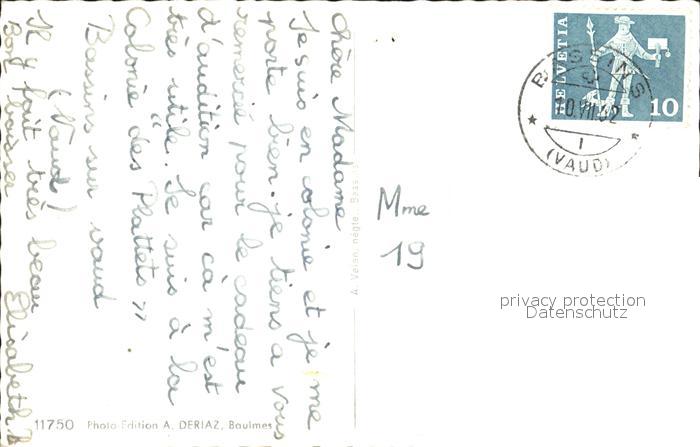 Chère Madame
Je suis en colonie et je me
porte bien. Je tiens a vous
remercié pour le cadeau
d'audition car çà m'est
très utile. Je suis à la
Colonie des Plattets "
Bassins sur vaud
(Vaud)
Il y fait très beau
Bons baiser Elisabeth B
11750 Photo Edition A. DERIAZ, Baulmes
Mme
19
HELVETIA
10
BASSINS
10.VII.62
1
(VAUD)
privacy protection
Datenschutz